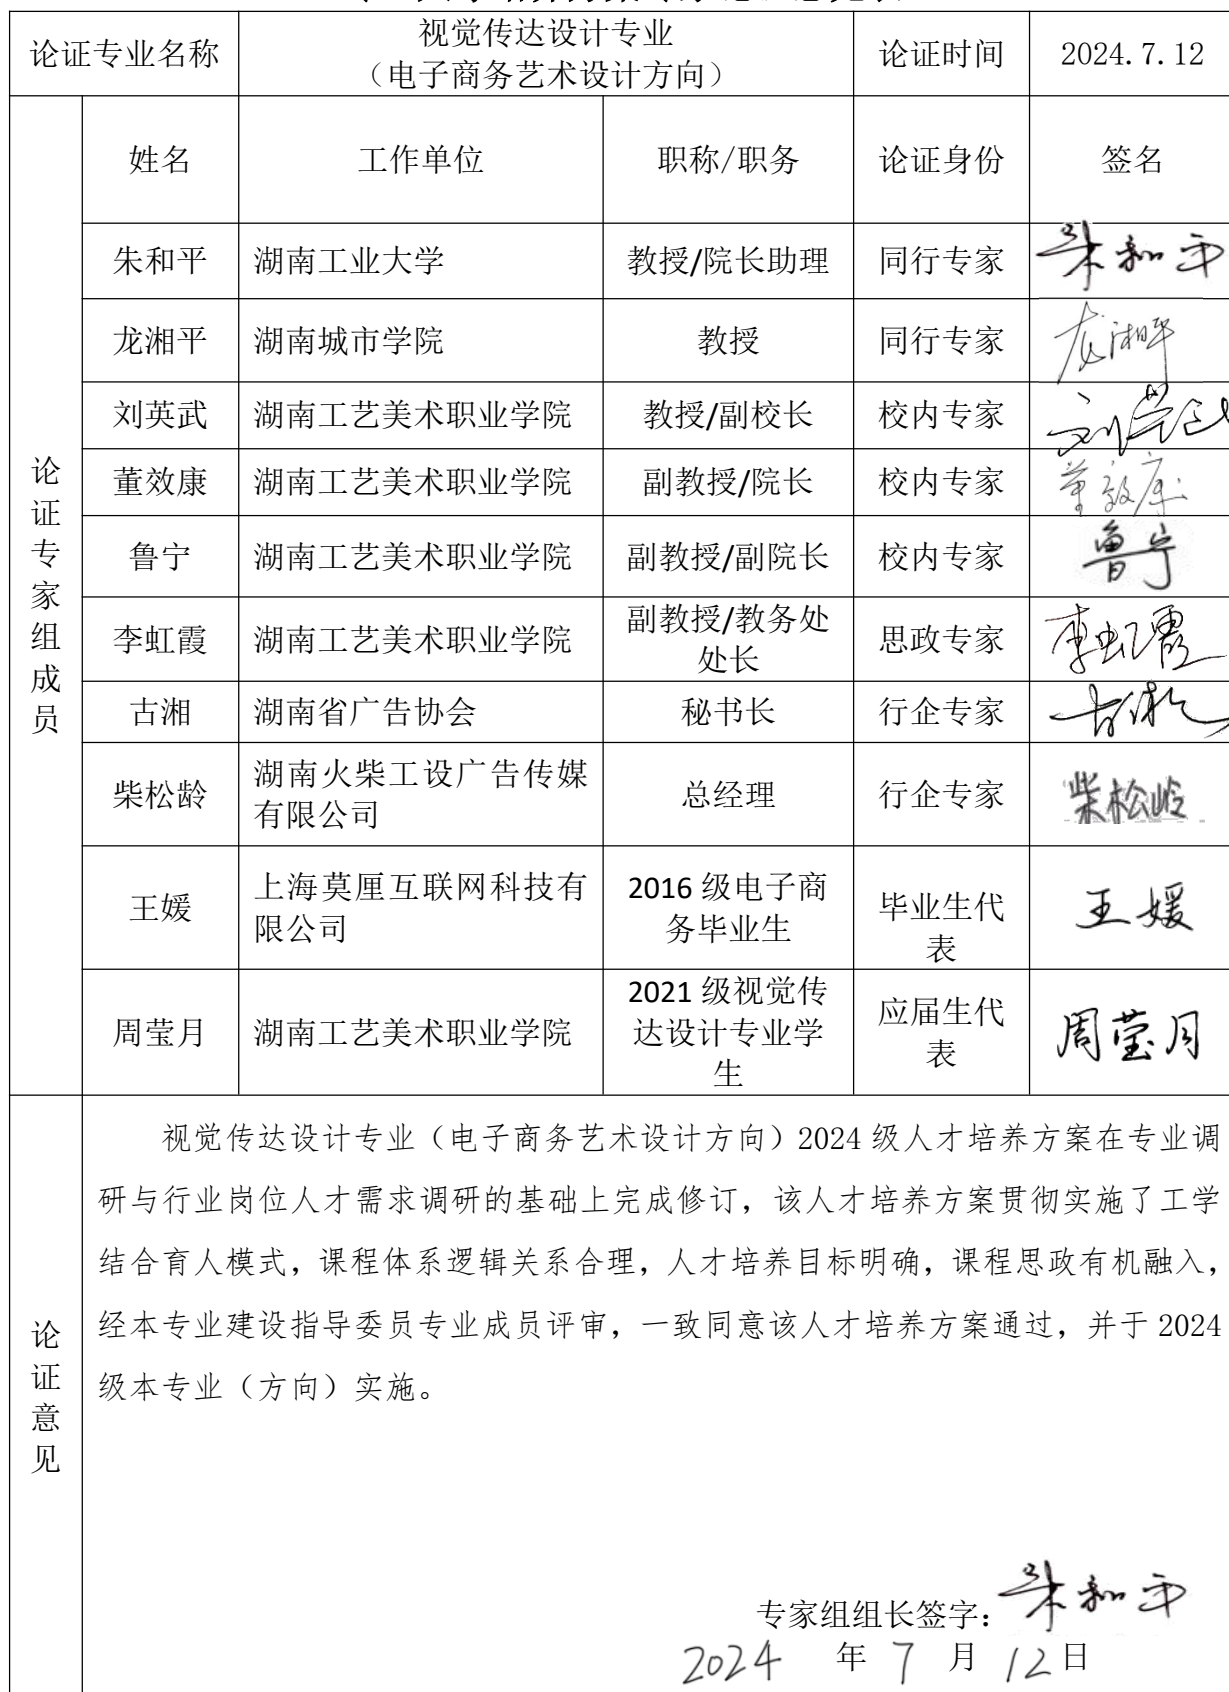 论证专业名称 视觉传达设计专业 论证时间 2024.7.12
（电子商务艺术设计方向）
论证专家组成员
姓名 工作单位 职称/职务 论证身份 签名
朱和平 湖南工业大学 教授/院长助理 同行专家 朱和平
龙湘平 湖南城市学院 教授 同行专家 龙湘平
刘英武 湖南工艺美术职业学院 教授/副校长 校内专家 刘英武
董效康 湖南工艺美术职业学院 副教授/院长 校内专家 董效康
鲁宁 湖南工艺美术职业学院 副教授/副院长 校内专家 鲁宁
李虹霞 湖南工艺美术职业学院 副教授/教务处 思政专家 李虹霞
处长
古湘 湖南省广告协会 秘书长 行企专家 古湘
柴松龄 湖南火柴工设广告传媒 总经理 行企专家 柴松岭
有限公司
王媛 上海莫厘互联网科技有 2016 级电子商 毕业生代 王媛
限公司 务毕业生 表
周莹月 湖南工艺美术职业学院 2021 级视觉传 应届生代 周莹月
达设计专业学 表
生
论证意见
视觉传达设计专业（电子商务艺术设计方向）2024 级人才培养方案在专业调
研与行业岗位人才需求调研的基础上完成修订，该人才培养方案贯彻实施了工学
结合育人模式，课程体系逻辑关系合理，人才培养目标明确，课程思政有机融入，
经本专业建设指导委员专业成员评审，一致同意该人才培养方案通过，并于 2024
级本专业（方向）实施。
专家组组长签字：朱和平
2024 年 7 月 12 日